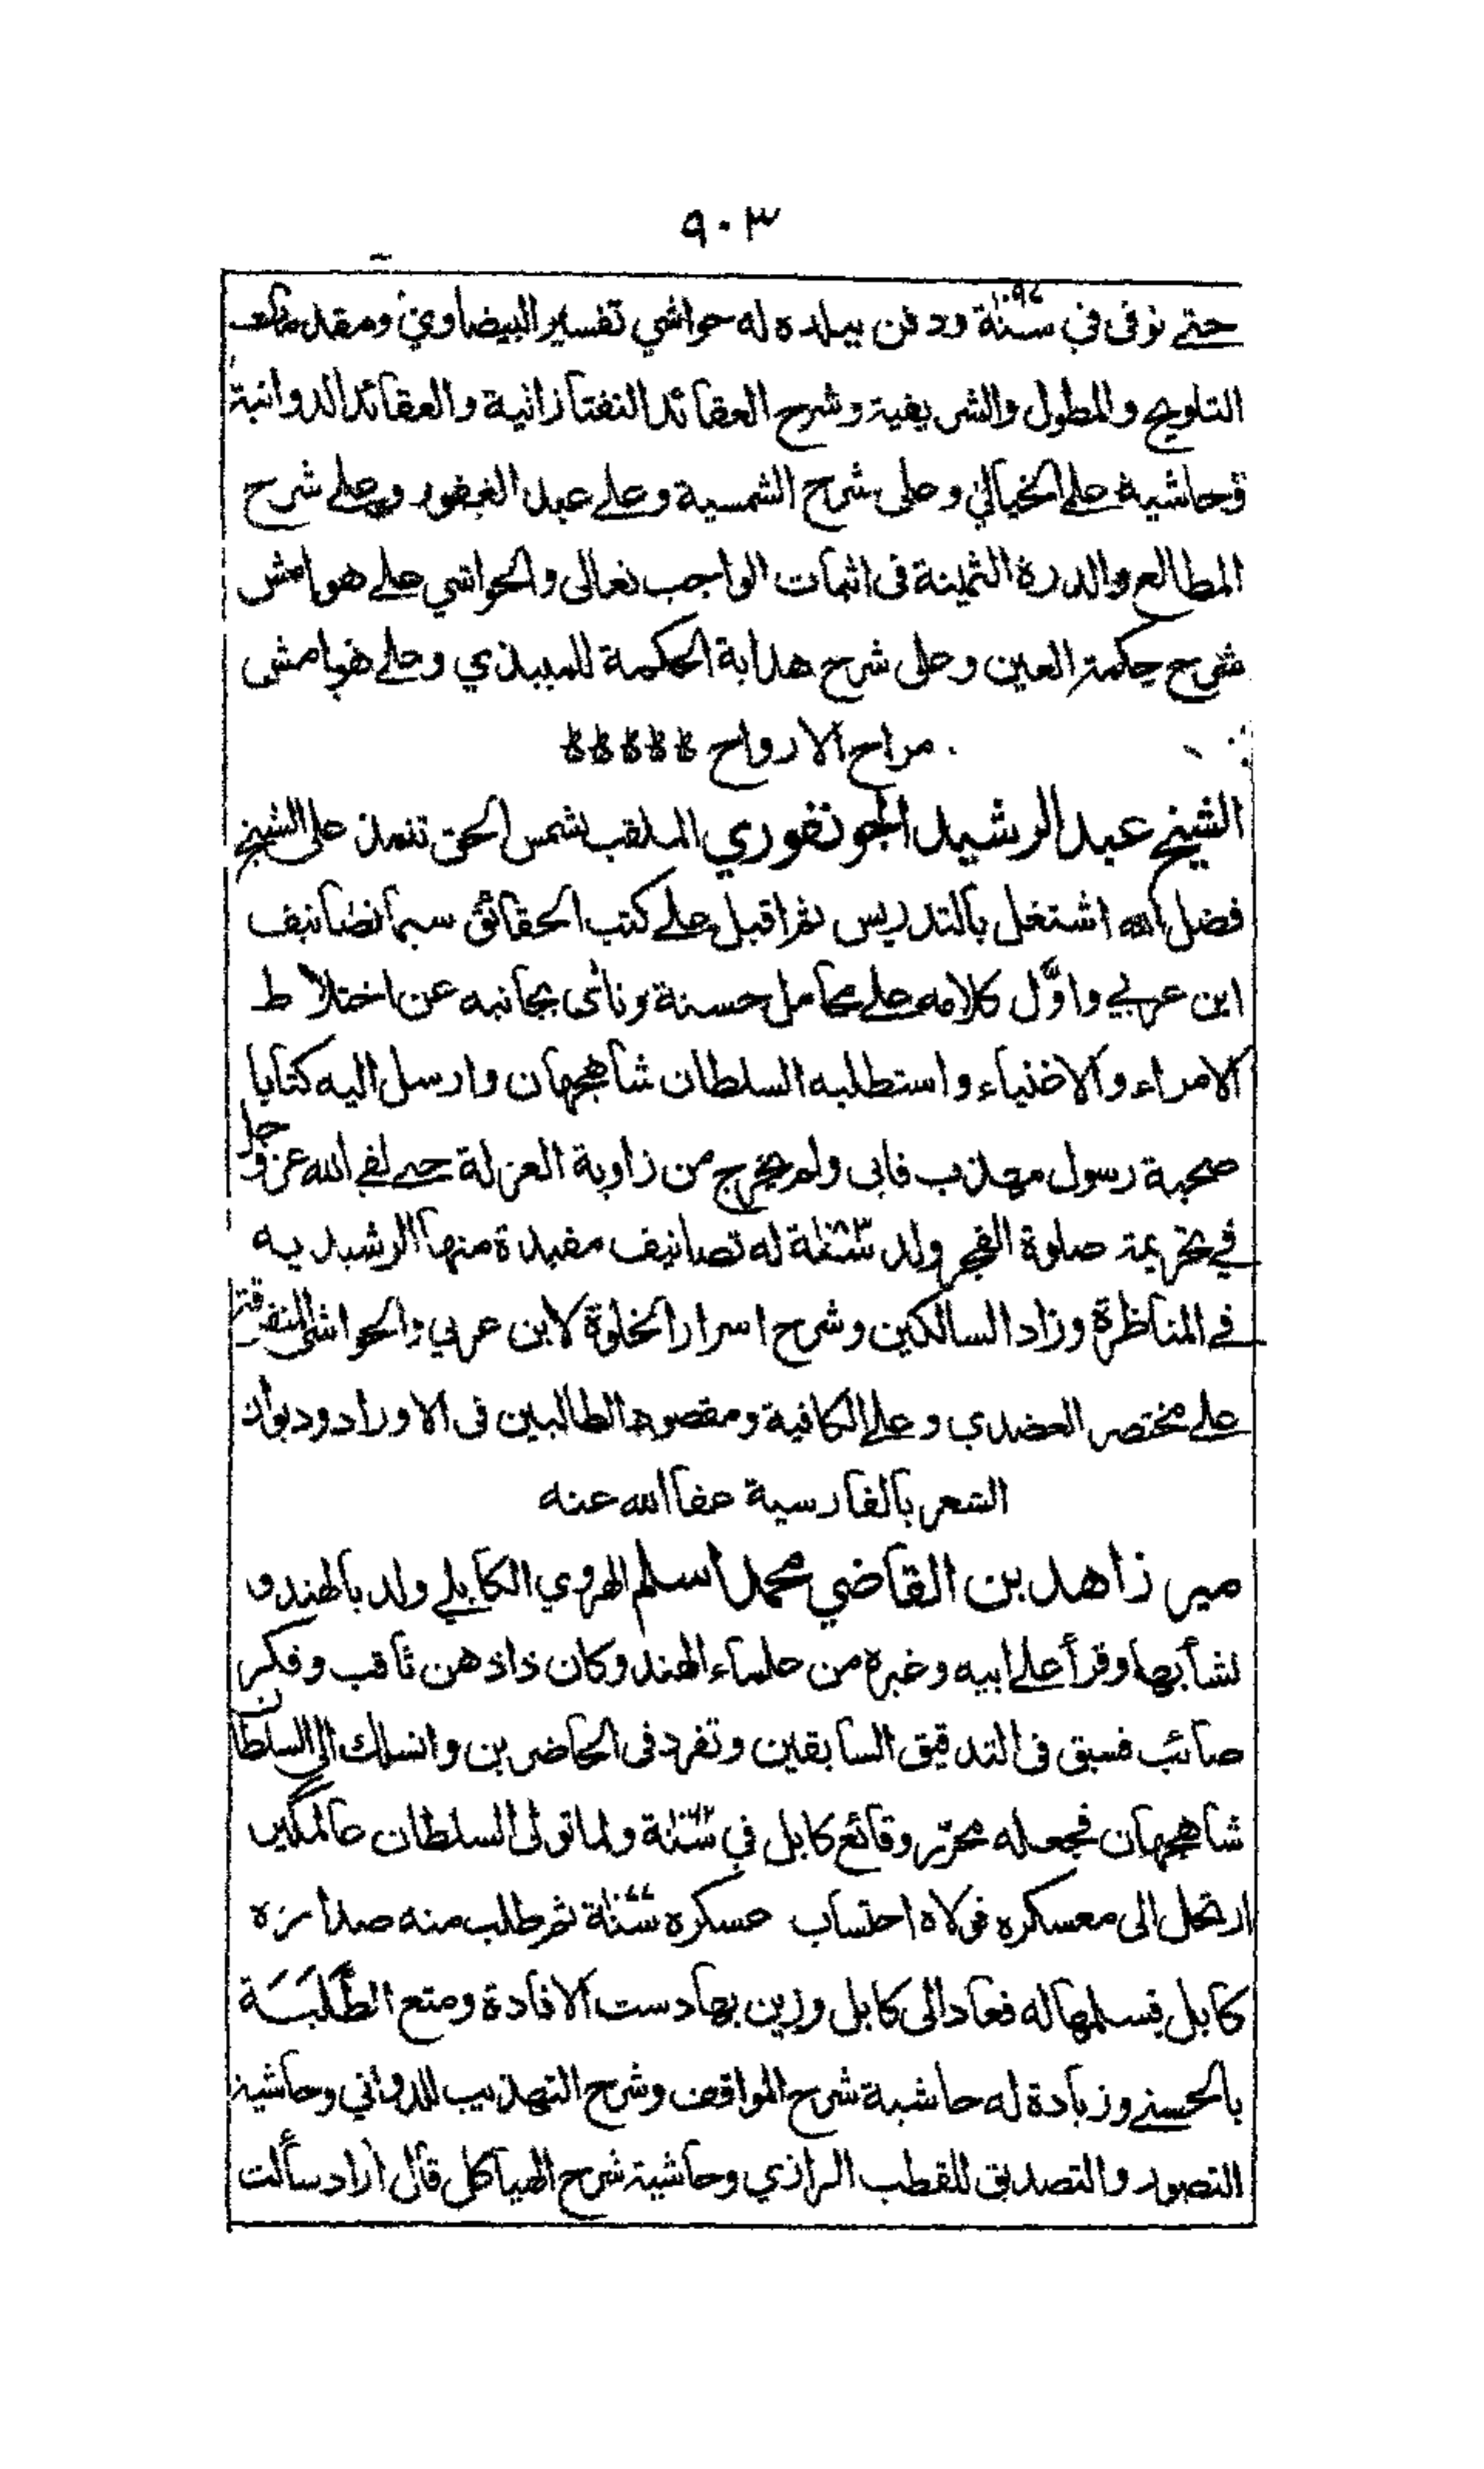 ٩٠٣
حتى توفى في سنة ودفن ببلده له حواشي تفسير البيضاوي ومقدمات
التلويح والمطول والشريفية وشرح العقائد التفتازانية والعقائد الدوانية
وحاشية على الخيالي وعلى شرح الشمسية وعلى عبد الغفور وعلى شرح
المطالع والدرة الثمينة في اثبات الواجب تعالى والحواشي على هوامش
شرح حكمة العين وعلى شرح هداية الحكمة للميبذي وعلى هوامش
مراح الارواح
الشيخ عبد الرشيد الجونفوري الملقب بشمس الحق تتلمذ على الشيخ
فضل الله اشتغل بالتدريس ثم اقبل على كتب الحقائق سيما تصانيف
ابن عربي واوَّل كلامه على محامل حسنة ونأى بجانبه عن اختلاط
الامراء والاغنياء واستطلبه السلطان شاهجهان وارسل اليه كتابا
صحبة رسول مهذب فابى ولم يخرج من زاوية العزلة حتى لقي الله عز وجل
في تحريمة صلوة الفجر ولد سنة له تصانيف مفيدة منها الرشيديه
في المناظرة وزاد السالكين وشرح اسرار الخلوة لابن عربي والحواشي المتفرقة
على مختصر العضدي وعلى الكافية ومقصود الطالبين في الاوراد وديوان
الشعر بالفارسية عفا الله عنه
مير زاهد بن القاضي محمد اسلم الهروي الكابلي ولد بالهند و
نشأ بها وقرأ على ابيه وغيره من علماء الهند وكان ذا ذهن ثاقب وفكر
صائب فسبق في التدقيق السابقين وتفرد في الحاضرين وانسلك الى السلطان
شاهجهان فجعله محرّر وقائع كابل في سنة ولما تولى السلطان عالمگير
ارتحل الى معسكره فولاه احتساب عسكره سنة ثم طلب منه صدارة
كابل فسلمها له فعاد الى كابل وزين بها دست الافادة ومتع الطَّلَبَة
بالحسنى وزيادة له حاشية شرح المواقف وشرح التهذيب للدواني وحاشية
التصور والتصديق للقطب الرازي وحاشية شرح الهياكل قال ازاد سألت